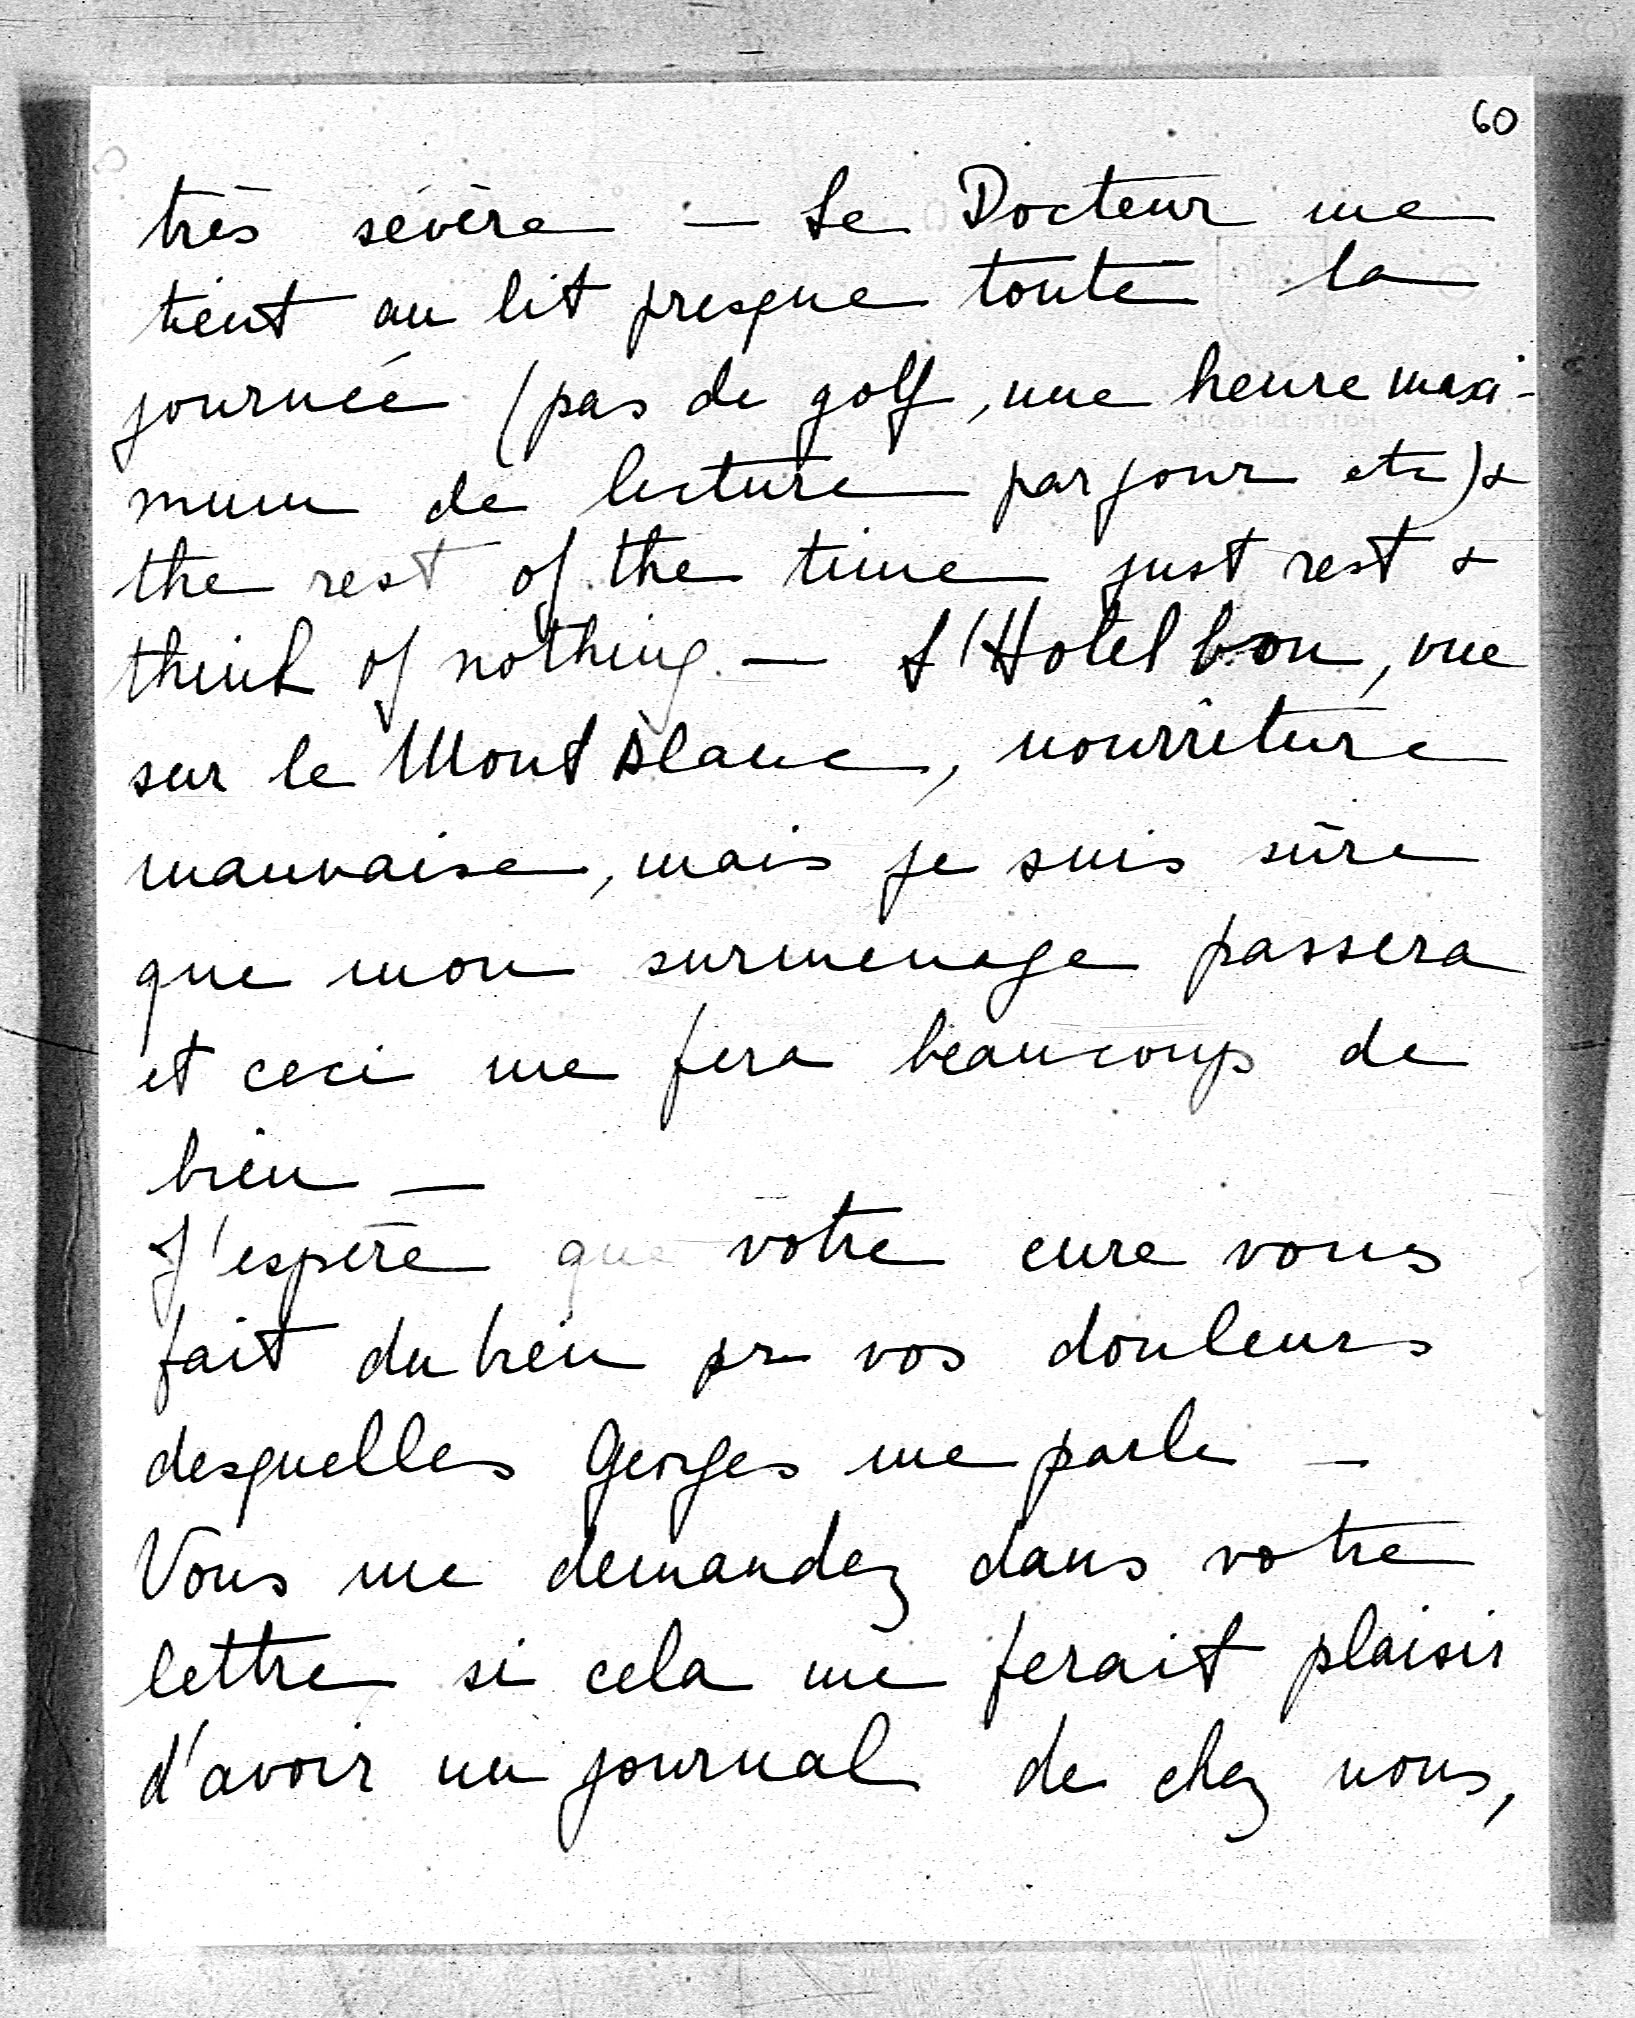 60
très sévère — Le Docteur me
tient au lit presque toute la
journée (pas de golf, une heure maxi-
mum de lecture par jour etc) &
the rest of the time just rest &
think of nothing. — L'Hotel bon, vue
sur le Mont Blanc, nourriture
mauvaise, mais je suis sûre
que mon surmenage passera
et ceci me fera beaucoup de
bien —
J'espère que votre cure vous
fait du bien pr vos douleurs
desquelles Georges me parle —
Vous me demandez dans votre
lettre si cela me ferait plaisir
d'avoir un journal de chez nous,